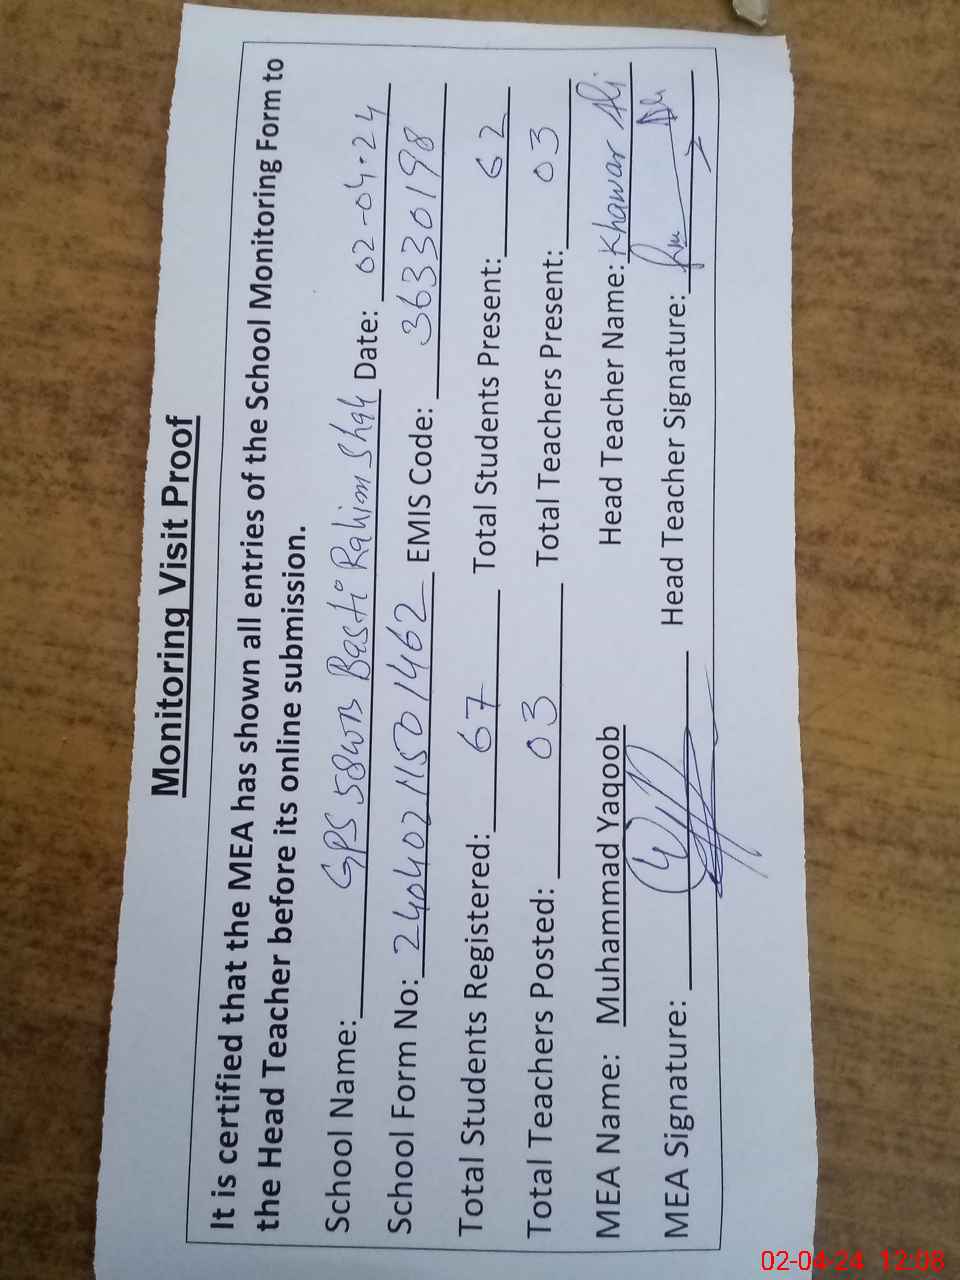 Monitoring Visit Proof
It is certified that the MEA has shown all entries of the School Monitoring Form to
the Head Teacher before its online submission.
School Name: GPS 58WB Basti Rahim Shah Date: 02-04-24
School Form No: 24040211501462 EMIS Code: 36330198
Total Students Registered: 67 Total Students Present: 62
Total Teachers Posted: 03 Total Teachers Present: 03
MEA Name: Muhammad Yaqoob Head Teacher Name: Khawar Ali
MEA Signature: Head Teacher Signature:
02-04-24 12:08